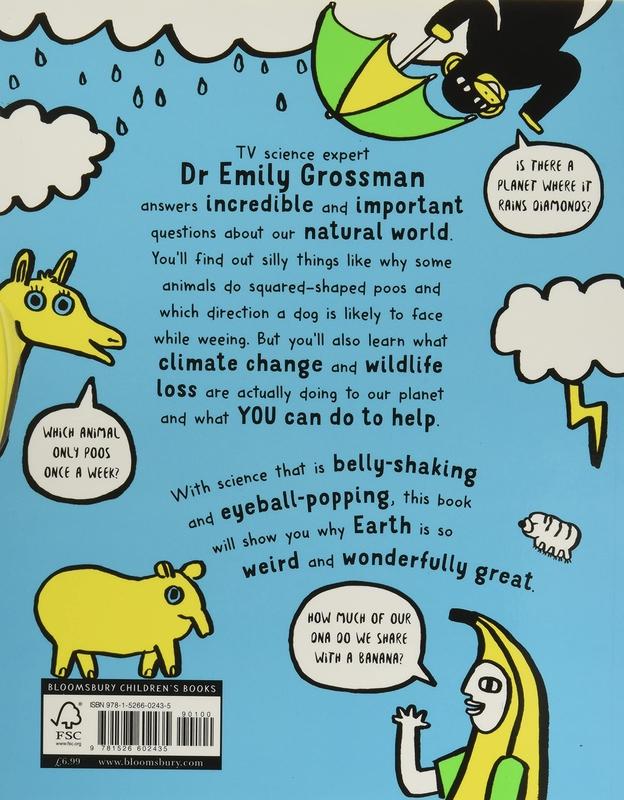 IS THERE A
PLANET WHERE IT
RAINS DIAMONDS?
TV science expert
Dr Emily Grossman
answers incredible and important
questions about our natural world.
You'll find out silly things like why some
animals do squared-shaped poos and
which direction a dog is likely to face
while weeing. But you'll also learn what
climate change and wildlife
loss are actually doing to our planet
and what YOU can do to help.
WHICH ANIMAL
ONLY POOS
ONCE A WEEK?
With science that is belly-shaking
and eyeball-popping, this book
will show you why Earth is so
weird and wonderfully great.
HOW MUCH OF OUR
DNA DO WE SHARE
WITH A BANANA?
BLOOMSBURY CHILDREN'S BOOKS
FSC
www.fsc.org
ISBN 978-1-5266-0243-5
90100
9 781526 602435
£6.99 www.bloomsbury.com